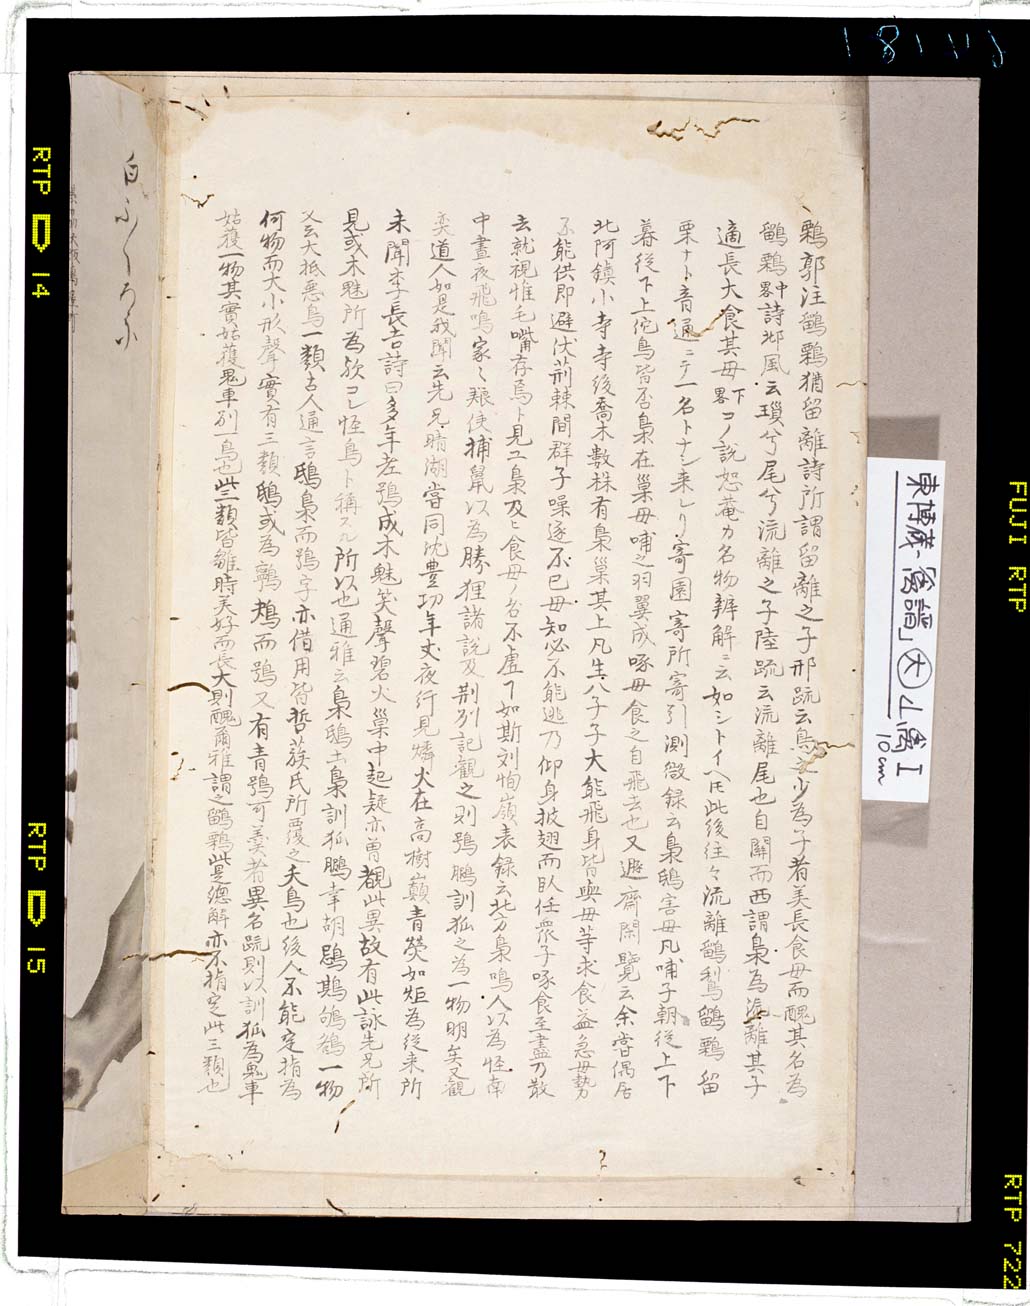 鶚郭注鶹鷅猶留離詩所謂留離之子邢疏云鳥之少為子者美長食母而醜其名為
鶹鷅中畧詩邶風云瑣兮尾兮流離之子陸疏云流離尾也自關而西謂梟為流離其子
適長大食其母下畧コノ説恕菴カ名物辨解ニ云如シトイヘ𪜈此後往々流離鶹鷅留
栗ナト音通ニテ一名トナシ来レリ寄園寄所寄引測微録云梟鴟害母凡哺子朝従上下
暮従下上佗鳥皆否梟在巢母哺之羽翼成啄母食之自飛去也又遯齋閑覽云余嘗偶居
北阿鎮小寺寺後喬木數株有梟巢其上凡生八子子大能飛身皆與母等求食益急母勢
不能供即避伏荊棘間群子噪逐不已母知必不能逃乃仰身披翅而臥任衆子啄食至盡乃散
去就視惟毛嘴存焉ト見ユ梟及ヒ食母ノ名不虚丁如斯刘恂嶺表録云北方梟鳴人以為怪南
中晝夜飛鳴家々羅使捕鼠以為勝狸諸説及荊州記觀之則鴞鵩訓狐之為一物明矣又觀
奕道人如是我聞云先兄晴湖嘗同沈豊功年丈夜行見燐火在高樹巔青熒如炬為従来所
未聞李長吉詩曰多年老鴞成木魅笑聲碧火巢中起疑亦曾覩此異故有此詠先兄所
見或木魅所為歟コレ怪鳥ト稱スル所以也通雅云梟鴟土梟訓狐鵩幸胡鵋䳢鵂鶹一物
又云大抵惡鳥類古人通言鴟梟而鴞字亦借用皆哲蔟氏所覆之夭鳥也後人不能定指為
何物而大小形聲實有三類鴟或為鸋鴂而鴞又有青鴞可羹者異名疏則以訓狐為鬼車
姑獲一物其實姑獲鬼車列一鳥也此三類皆雛時美好而長大則醜爾雅謂之鶹鷅此是總解亦不指定此三類也
白ふくろふ
東博蔵「禽譜」大山禽I
10cm
RTP
14
RTP
15
FUJI RTP
RTP 722